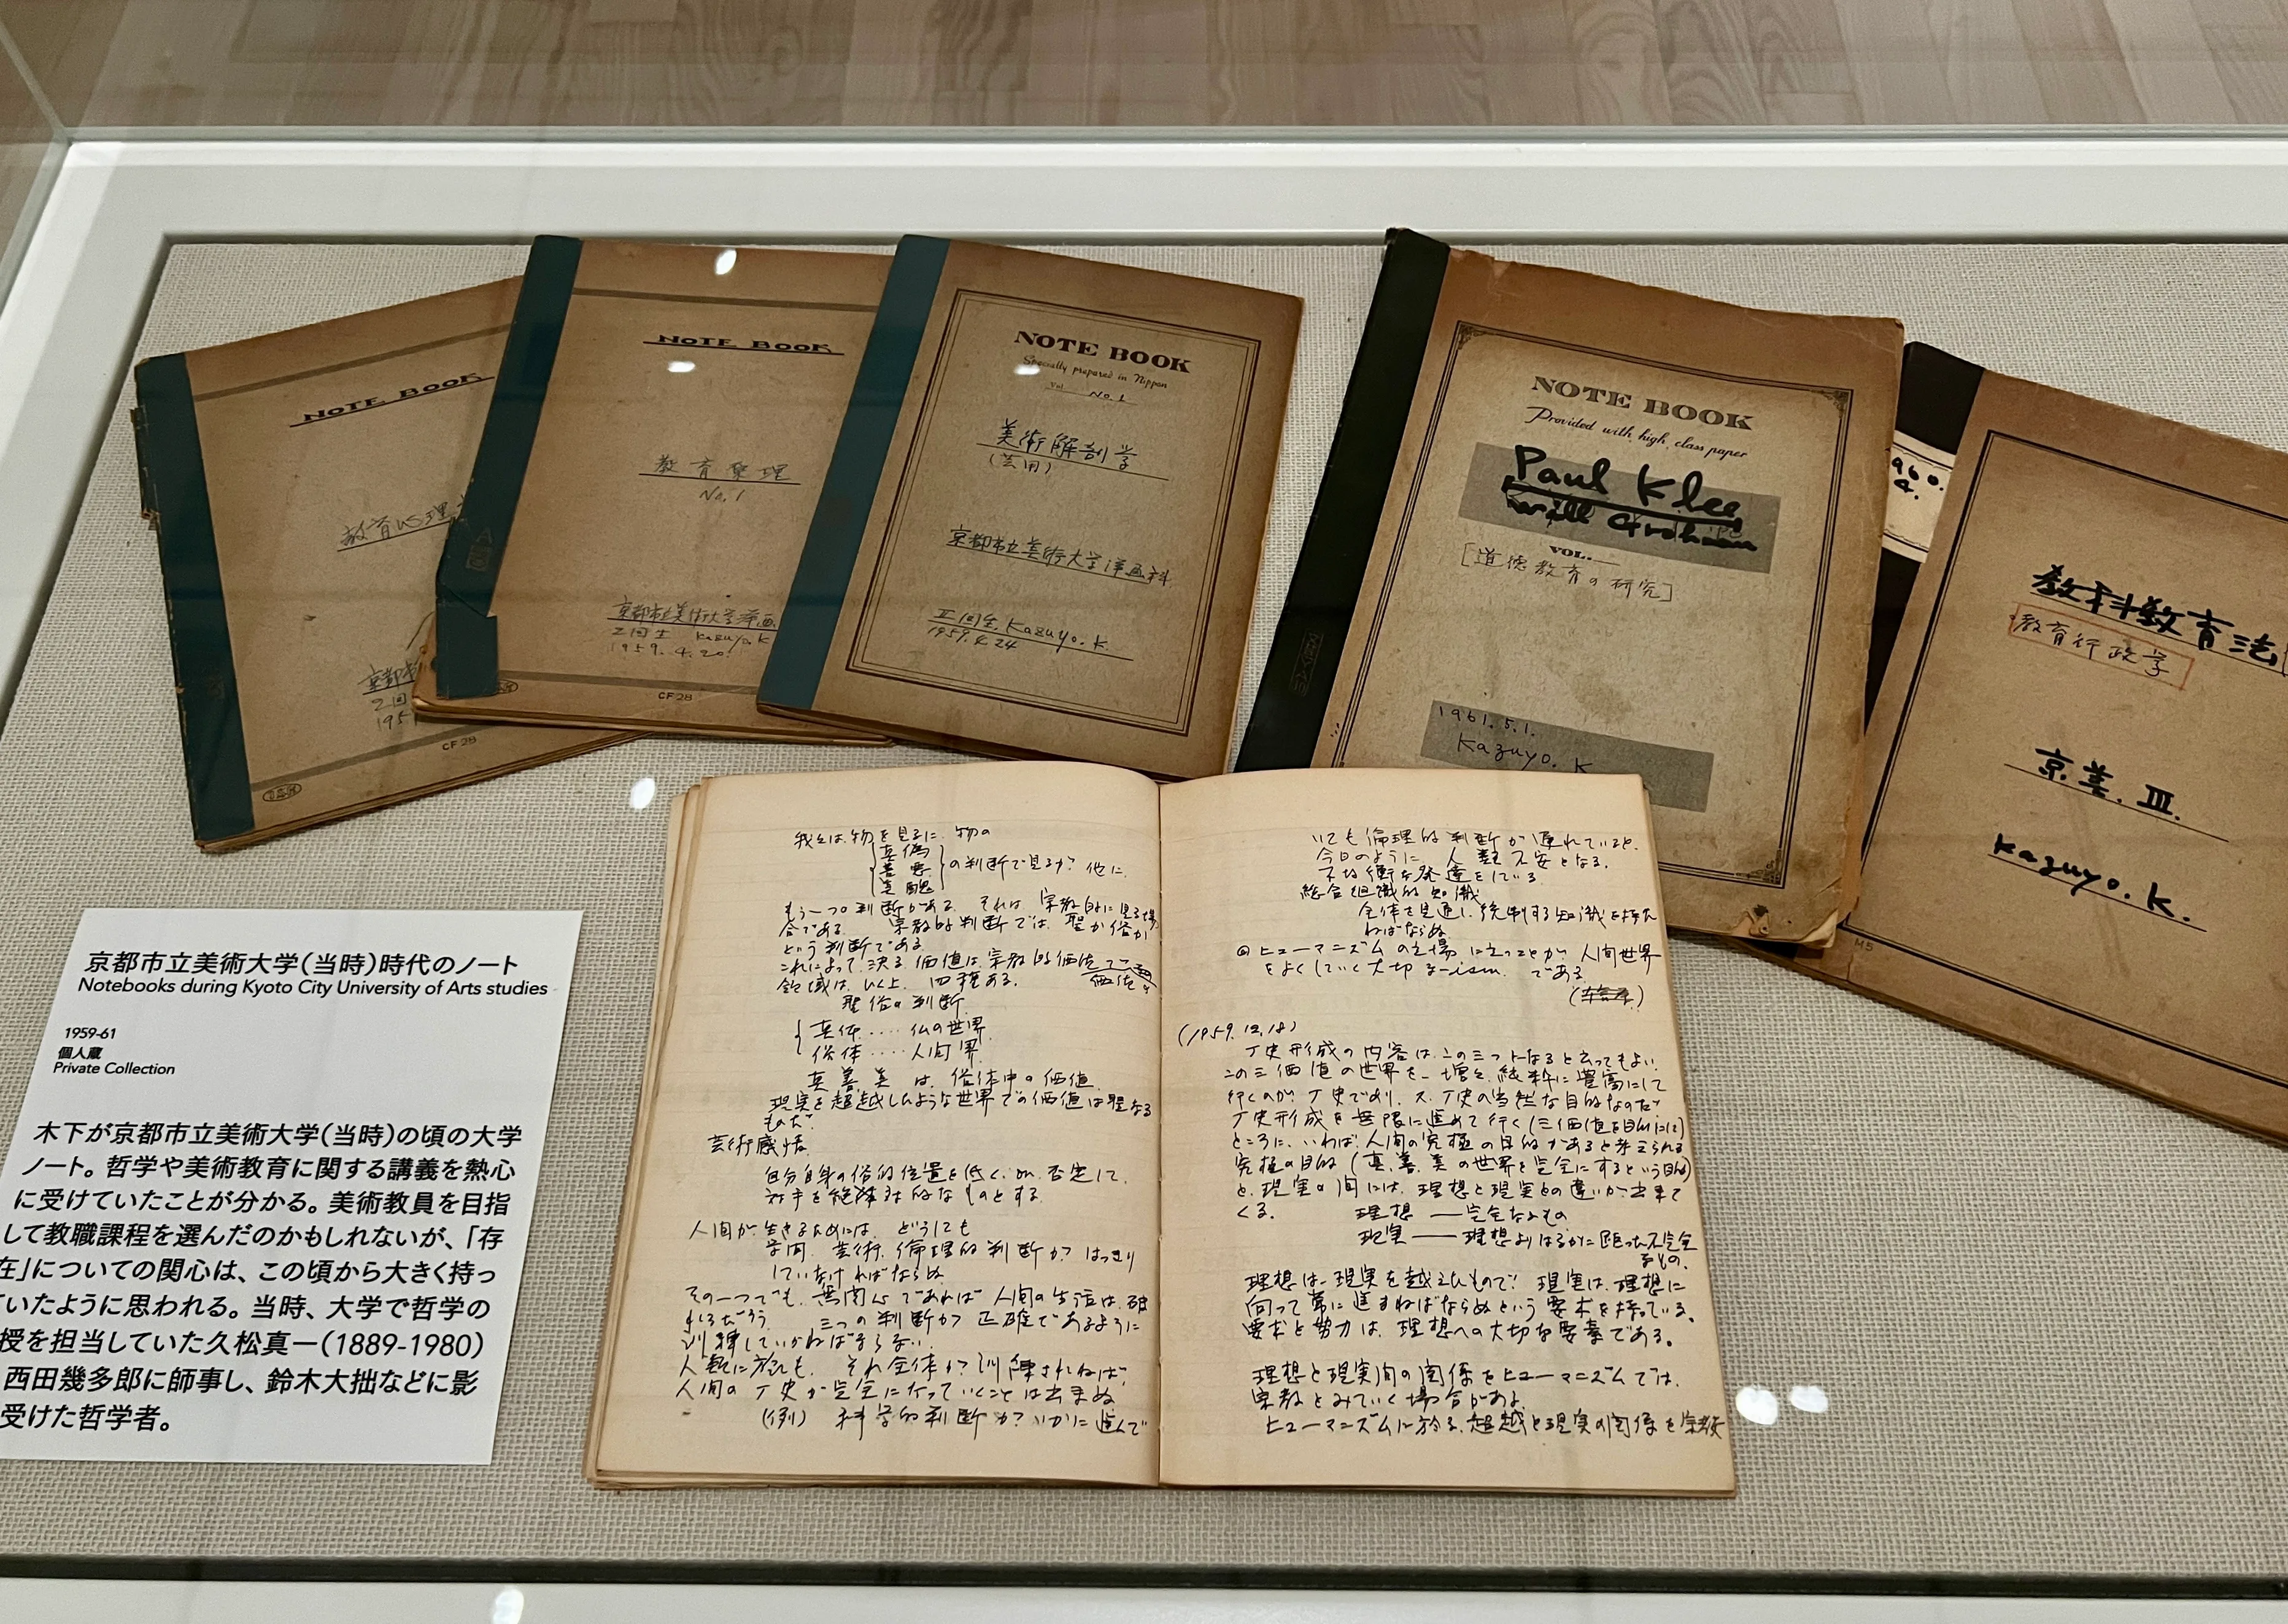 NOTE BOOK
教育心理
京都市
2回
195
CF 28
NOTE BOOK
教育原理
No. 1
京都市立美術大学洋画
2回生 Kazuyo. K
1959. 4. 20
CF 28
NOTE BOOK
Specially prepared in Nippon
Vol. No. 1
美術解剖学
(芸用)
京都市立美術大学洋画科
II回生 Kazuyo. K.
1959. 4. 24
NOTE BOOK
Provided with high class paper
Paul Klee
Will Grohmann
VOL.
[道徳教育の研究]
1961. 5. 1.
Kazuyo. K
1960.
4.
教科教育法
教育行政学
京美. III.
Kazuyo. K.
M5
京都市立美術大学(当時)時代のノート
Notebooks during Kyoto City University of Arts studies
1959-61
個人蔵
Private Collection
木下が京都市立美術大学(当時)の頃の大学
ノート。哲学や美術教育に関する講義を熱心
に受けていたことが分かる。美術教員を目指
して教職課程を選んだのかもしれないが、「存
在」についての関心は、この頃から大きく持っ
ていたように思われる。当時、大学で哲学の
授を担当していた久松真一(1889-1980)
西田幾多郎に師事し、鈴木大拙などに影
受けた哲学者。
我々は物を見るに 物の
真偽
善悪
美醜
の判断で見るが? 他に
もう一つの判断がある. それは 宗教的に見る場
合である. 宗教的判断では 聖か俗か
という判断である
これによって決る価値は宗教的価値
領域は 以上 四種ある.
聖俗の判断
真体....仏の世界
俗体....人間界
真善美は 俗体中の価値
現実を超越したような世界での価値は聖なる
ものだ.
芸術感情
自分自身の俗的位置を低く. 否定して.
対手を絶対的なものとする.
人間が生きるためには. どうしても
学問. 芸術. 倫理的判断が はっきり
していなければならぬ
その一つでも. 無関心であれば 人間の生活は破
れるだろう. 三つの判断が 正確であるように
訓練していかねばならない.
人類に於ても. それ全体が訓練されねば.
人間の丁史が完全になっていくことは出来ぬ
(例) 科学的判断が いかに進んで
いても倫理的判断が遅れていると.
今日のように 人類不安となる.
不均衡な発達をしている
総合組織的知識
全体を見通し. 統制する知識を持た
ねばならぬ
ヒューマニズムの立場に立つことが 人間世界
をよくしていく大切な-ism. である.
(1959. 12. 18)
丁史形成の内容は. この三つトなると云ってもよい.
この三価値の世界を 増々 純粋に豊富にして
行くのが 丁史であり. 又. 丁史の当然な目的なのだ.
丁史形成を無限に進めて行く(三価値を目的に)
ところに. いわば. 人間の究極の目的があると考えられる
究極の目的(真. 善. 美の世界を完全にするという目的)
と. 現実の間には. 理想と現実との違いが出来て
くる. 理想 ― 完全なもの
現実 ― 理想よりはるかに距った不完全
なもの.
理想は 現実を越えたもので! 現実は. 理想に
向って常に進まねばならぬという要求を持っている.
要求と努力は. 理想への大切な要素である.
理想と現実間の関係をヒューマニズムでは.
宗教とみていく場合がある.
ヒューマニズムに於る. 超越と現実の関係を宗教